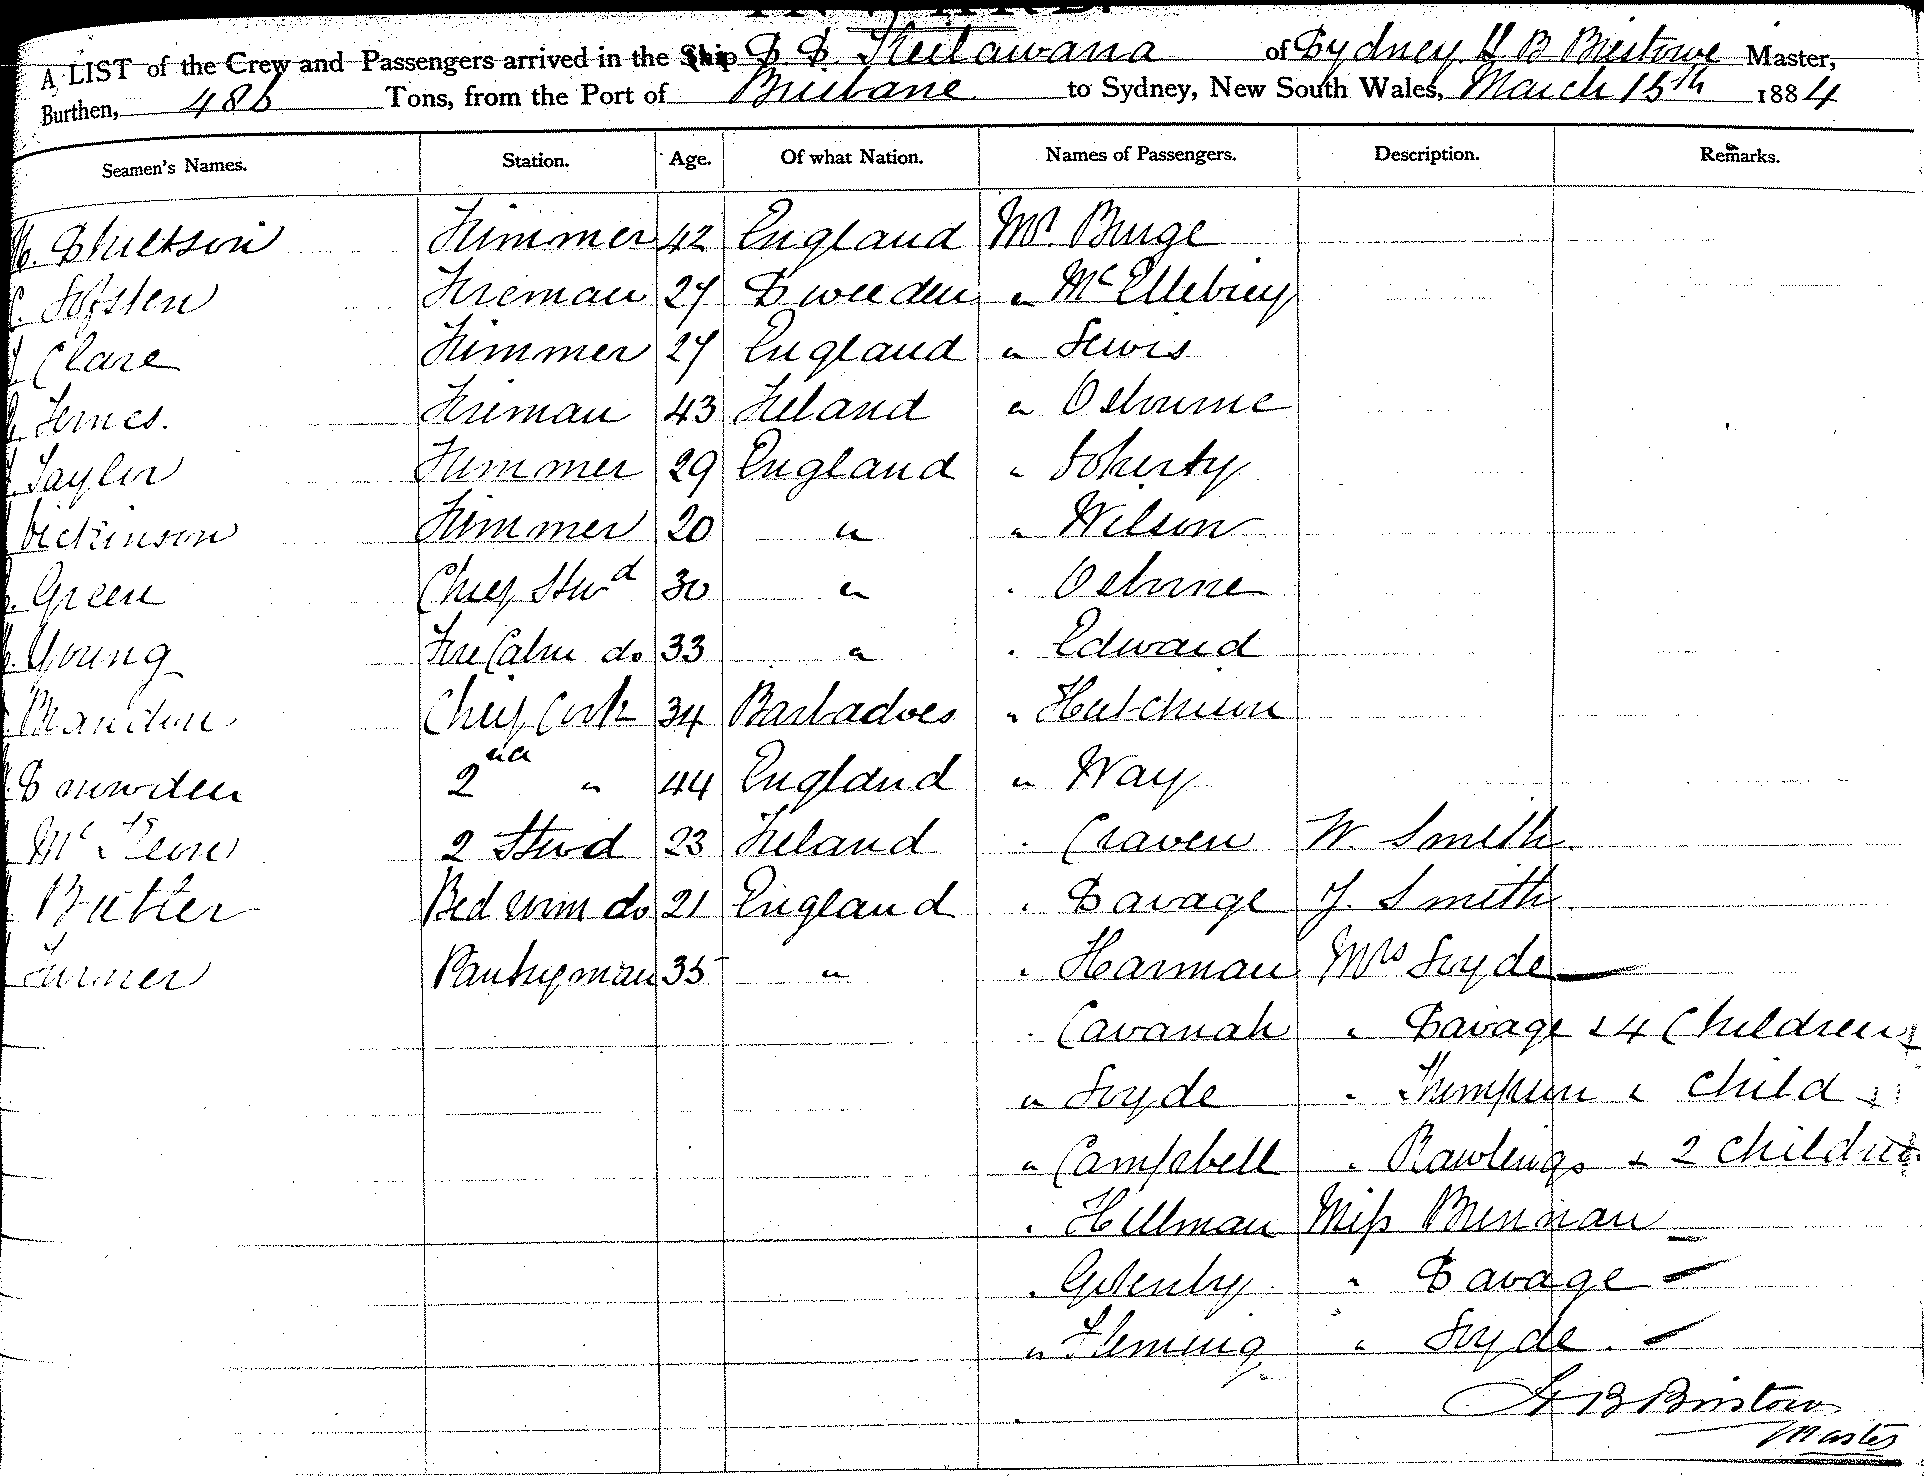 A LIST of the Crew and Passengers arrived in the Ship S S Keilawarra of Sydney H B Bristowe Master,
Burthen, 486 Tons, from the Port of Brisbane to Sydney, New South Wales, March 15th 1884
Seamen's Names. Station. Age. Of what Nation. Names of Passengers. Description. Remarks.
Trimmer 42 England Mr. Burge
Fireman 27 Sweeden " McEllebriey
Clare Trimmer 27 England " Lewis
Fireman 43 Ireland " Osbourne
Taylor Trimmer 29 England " Doherty
Dickinson Trimmer 20 " " Wilson
Green Chief Stwd 30 " " Osborne
Young Fre Cabin do 33 " " Edward
Brandon Chief Cook 34 Barbadoes " Hutchison
Snowden 2nd " 44 England " Way
2 Stwd 23 Ireland " Craven W. Smith
Butler Bed room do 21 England " Savage J. Smith
Turner Pantryman 35 " " Harman Mrs Loyde
" Cavanah " Savage & 4 Children
" Loyde " Thompson & Child
" Campbell " Rawlings & 2 Children
" Hillman Miss Brennan
" " Savage
" Fleming " Loyde.
H B Bristowe
Master